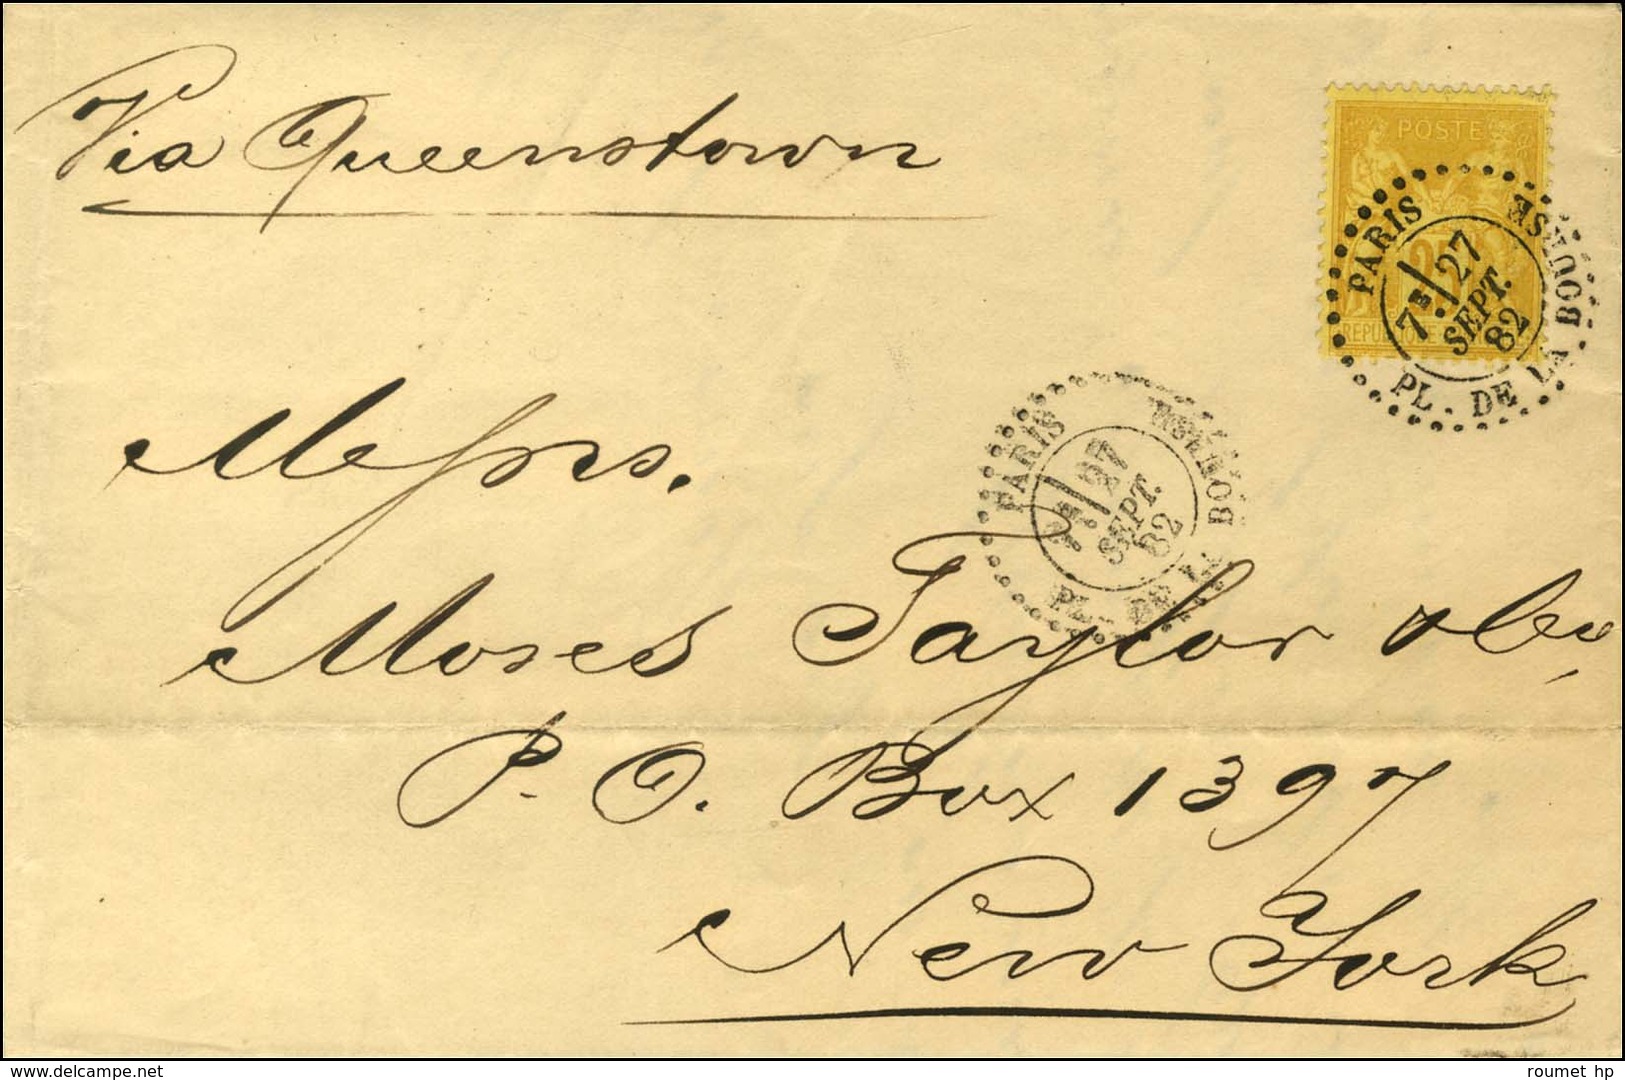 Via Queenstown
POSTE
25
REPUBLIQUE
PARIS
7E 27
SEPT.
82
PL. DE LA BOURSE
PARIS
7E 27
SEPT.
82
PL. DE LA BOURSE
Messrs.
Moses Taylor & Co,
P. O. Box 1397
New York
www.delcampe.net
roumet_hp